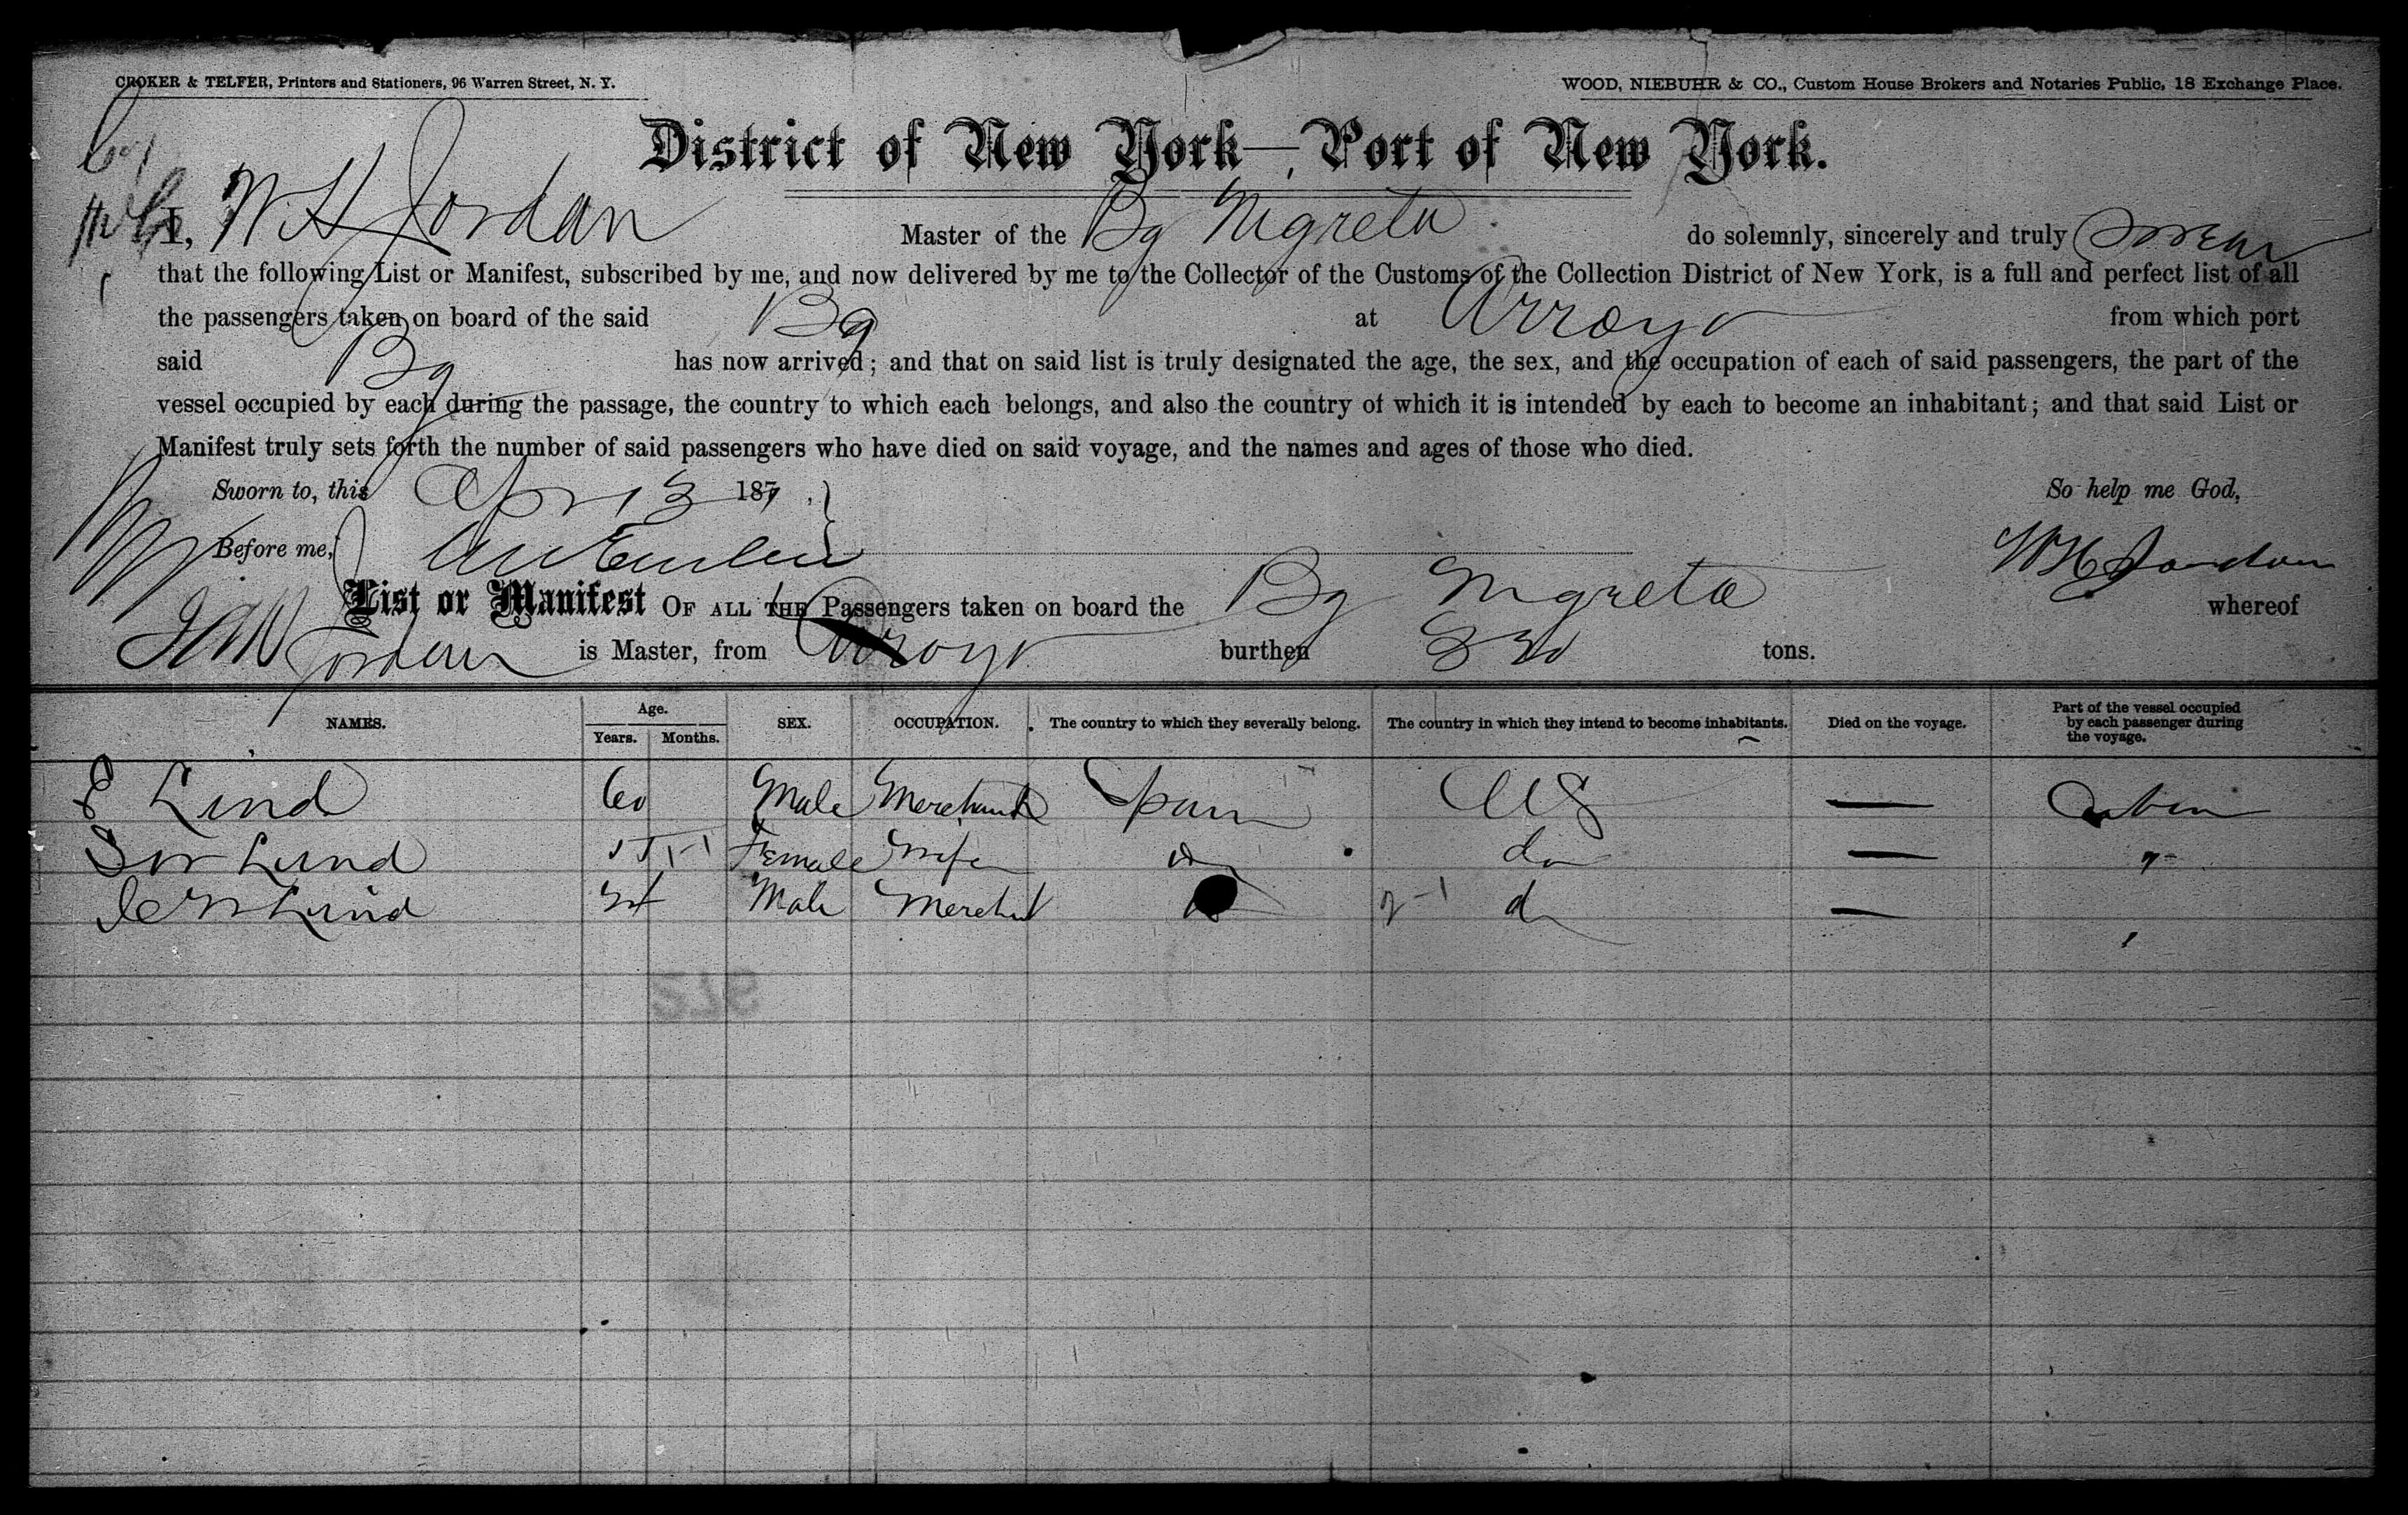 CROKER & TELFER, Printers and Stationers, 96 Warren Street, N. Y.
WOOD, NIEBUHR & CO., Custom House Brokers and Notaries Public, 18 Exchange Place.
District of New York—Port of New York.
I, W H Jordan Master of the Bg Nigreta do solemnly, sincerely and truly swear
that the following List or Manifest, subscribed by me, and now delivered by me to the Collector of the Customs of the Collection District of New York, is a full and perfect list of all
the passengers taken on board of the said Bg at Arroyo from which port
said Bg has now arrived; and that on said list is truly designated the age, the sex, and the occupation of each of said passengers, the part of the
vessel occupied by each during the passage, the country to which each belongs, and also the country of which it is intended by each to become an inhabitant; and that said List or
Manifest truly sets forth the number of said passengers who have died on said voyage, and the names and ages of those who died.
Sworn to, this Apr 13 187 So help me God,
Before me, W H Jordan
List or Manifest OF ALL THE Passengers taken on board the Bg Nigreta whereof
Jordan is Master, from Arroyo burthen tons.
NAMES. Age. Years. Months. SEX. OCCUPATION. The country to which they severally belong. The country in which they intend to become inhabitants. Died on the voyage. Part of the vessel occupied by each passenger during the voyage.
E Lind 60 Male Merchant Spain US — Cabin
Lind Female Wife do do — "
Lind Male Mercht do —